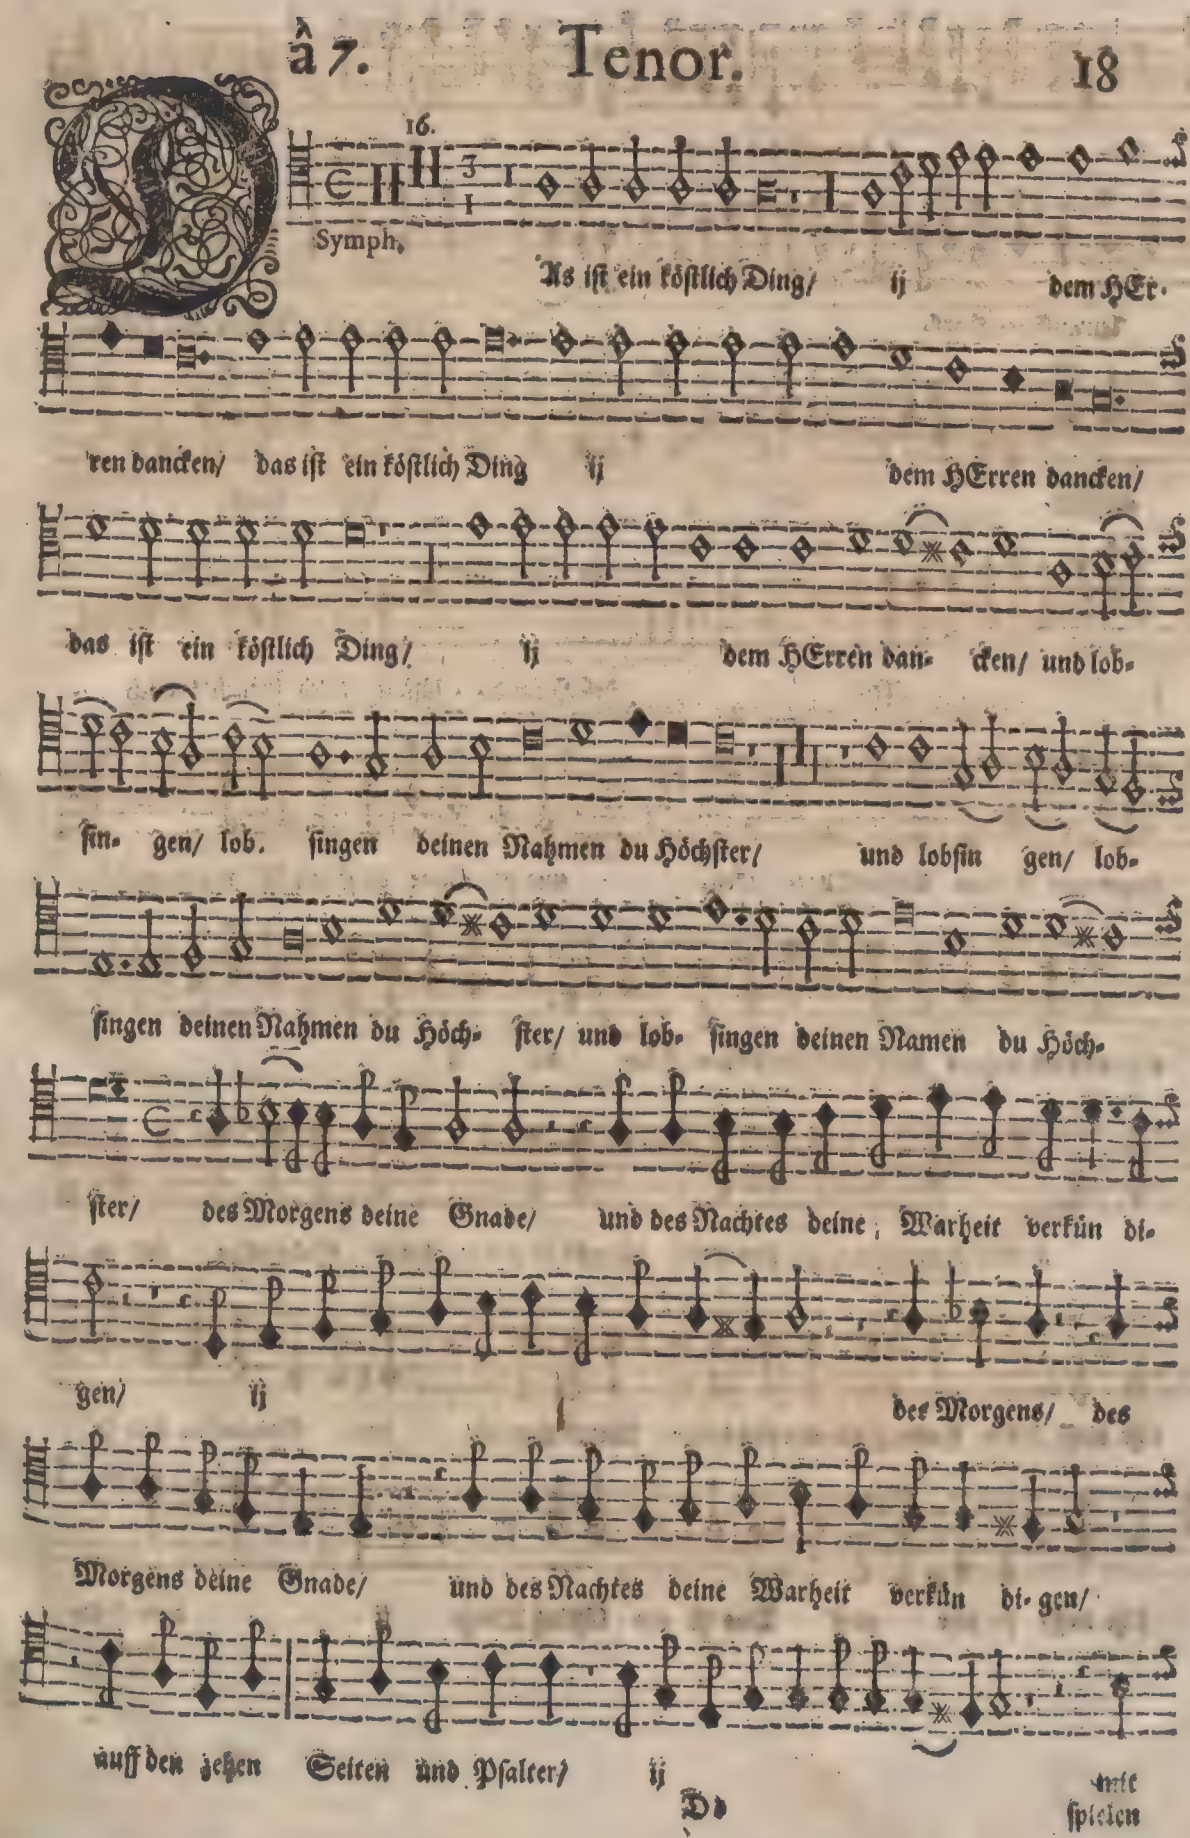 â 7. Tenor. 18
16.
3
1
Symph.
DAs ist ein köstlich Ding/ ij dem HEr-
ren dancken/ das ist ein köstlich Ding ij dem HErren dancken/
das ist ein köstlich Ding/ ij dem HErren dan- cken/ und lob-
sin- gen/ lob. singen deinen Nahmen du Höchster/ und lobsin gen/ lob-
singen deinen Nahmen du Höch- ster/ und lob- singen deinen Namen du Höch-
ster/ des Morgens deine Gnade/ und des Nachtes deine Warheit verkün di-
gen/ ij des Morgens/ des
Morgens deine Gnade/ und des Nachtes deine Warheit verkün di- gen/
auff den zehen Seiten und Psalter/ ij mit
D d spielen